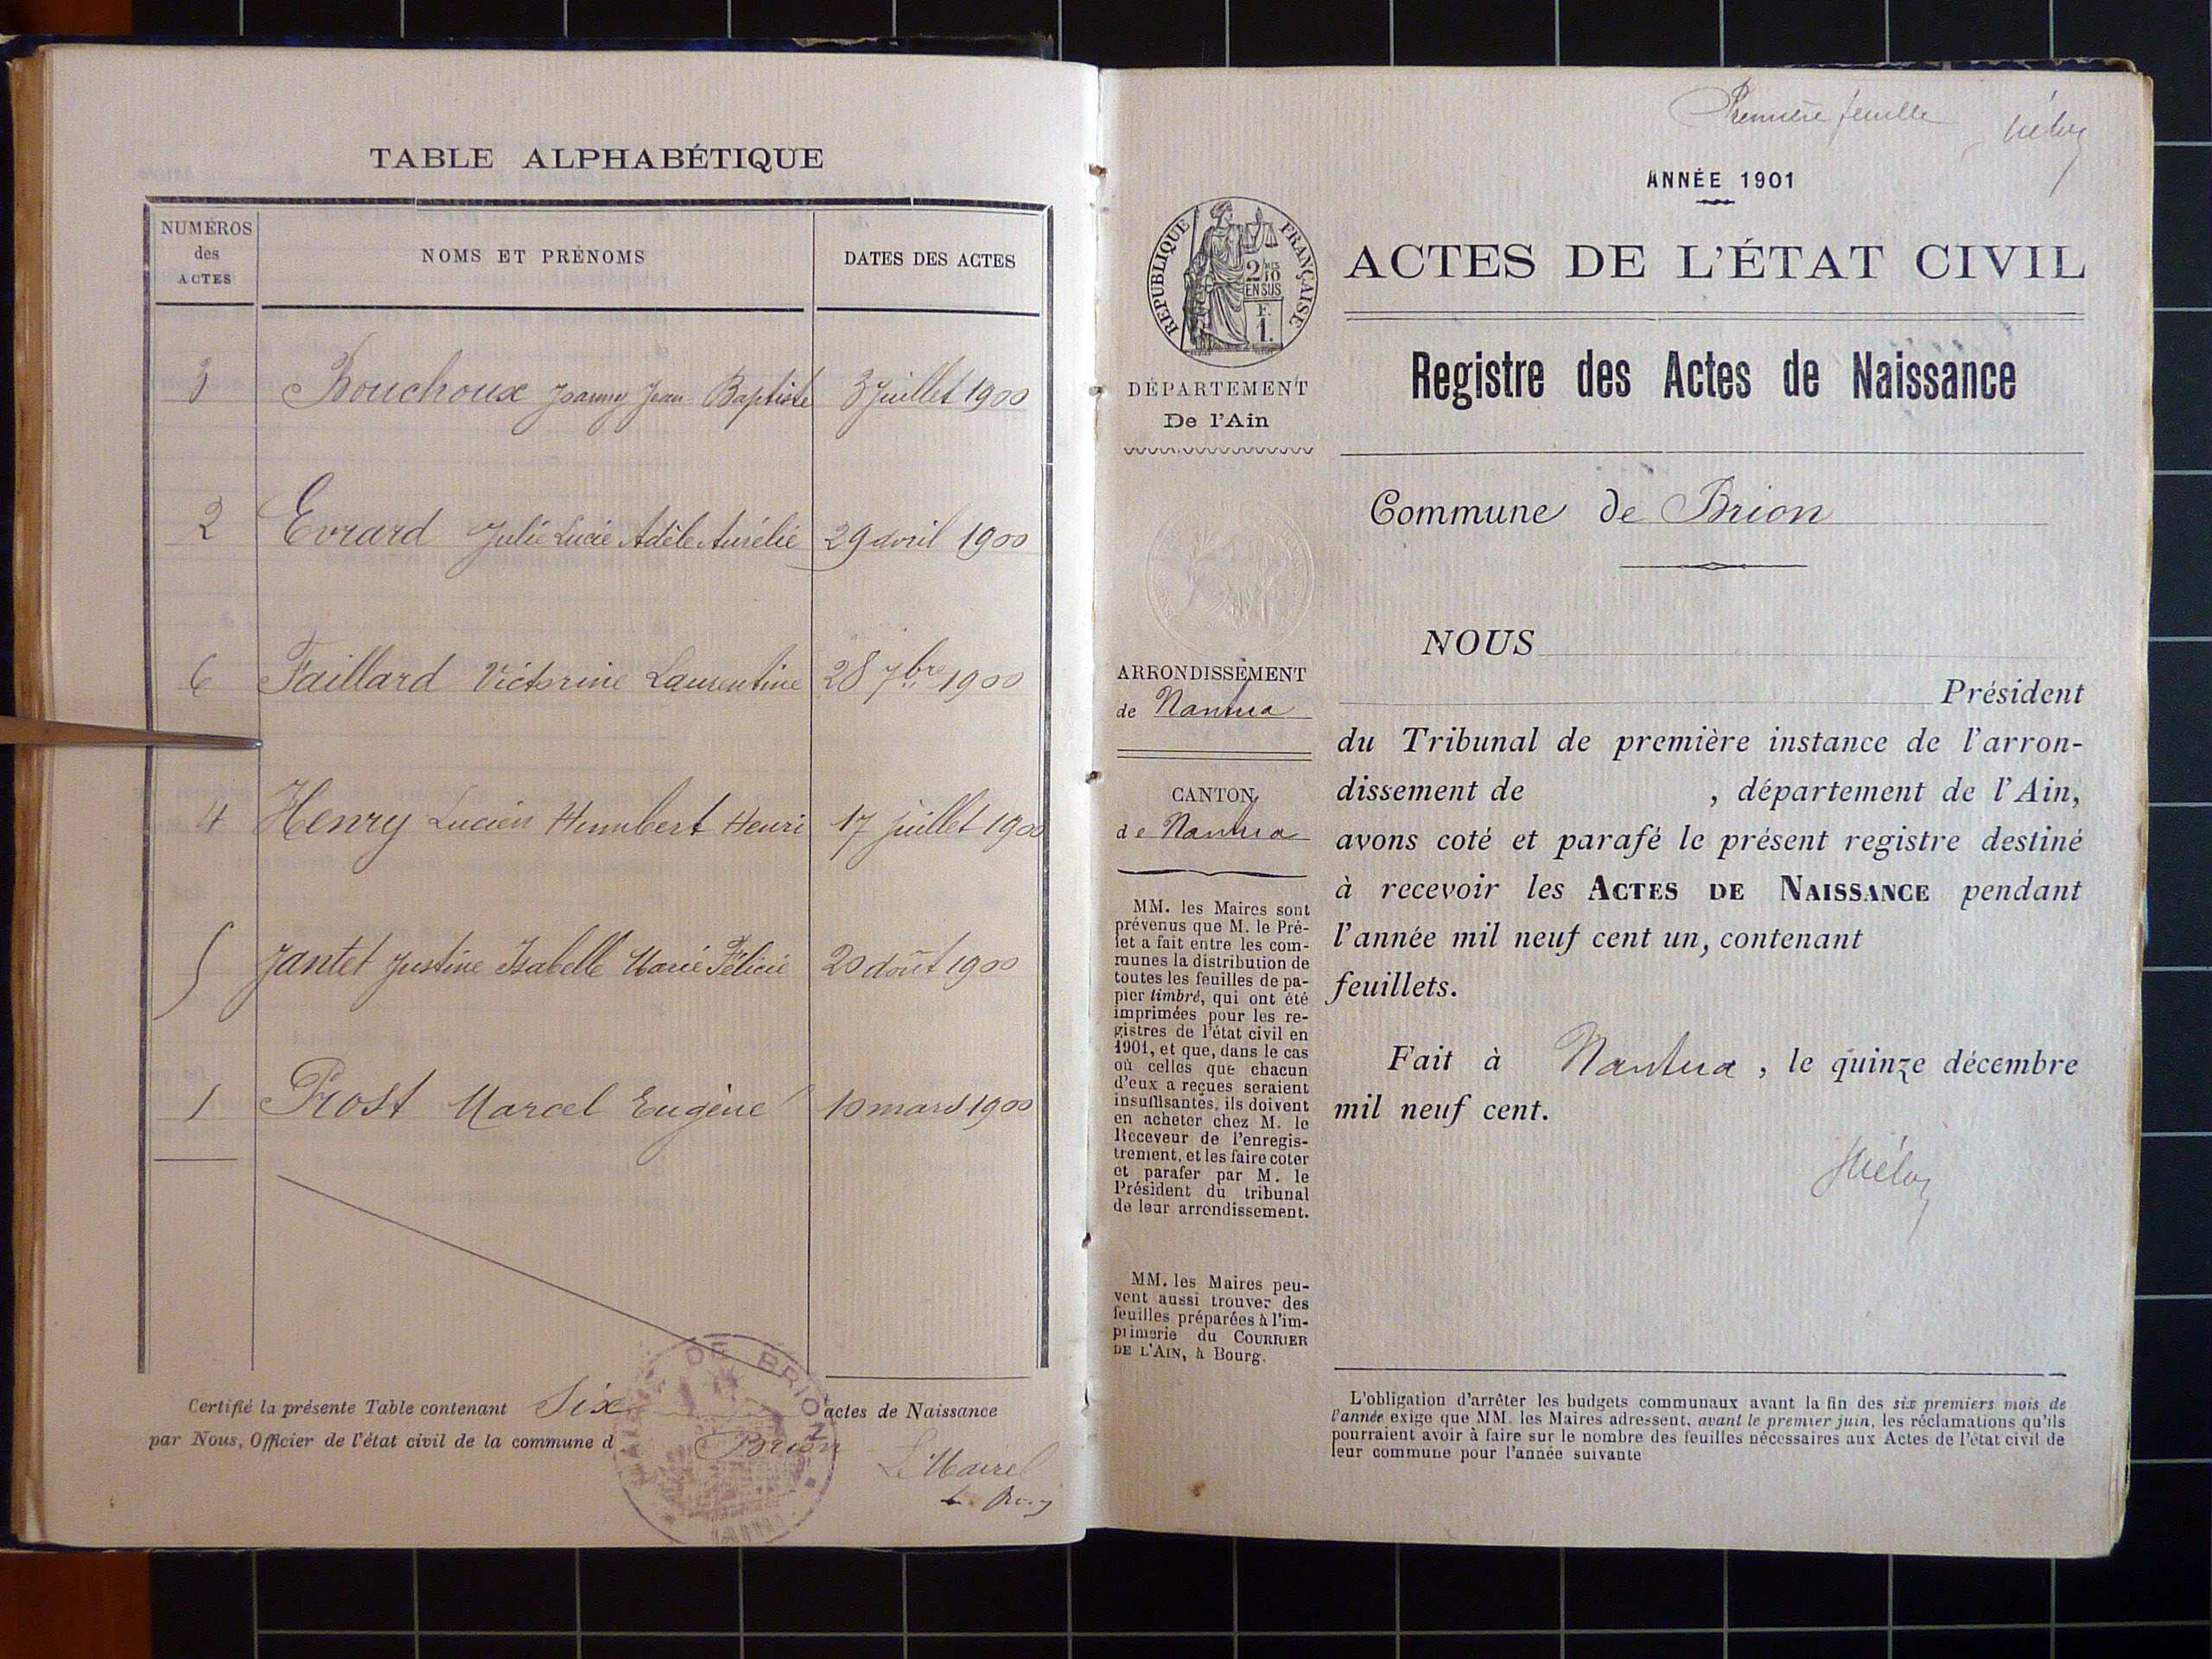 TABLE ALPHABÉTIQUE
NUMÉROS
des
ACTES
NOMS ET PRÉNOMS
DATES DES ACTES
3 Bouchoux Joanny Jean Baptiste 3 juillet 1900
2 Evrard Julie Lucie Adèle Aurélie 29 avril 1900
6 Faillard Victorine Laurentine 28 7bre 1900
4 Henry Lucien Humbert Henri 17 juillet 1900
5 Jantet Justine Isabelle Marie Félicie 20 août 1900
1 Prost Marcel Eugène 10 mars 1900
Certifié la présente Table contenant Six actes de Naissance
par Nous, Officier de l'état civil de la commune d Brion
DE BRION
Le Maire
Première feuille
ANNÉE 1901
RÉPUBLIQUE FRANÇAISE
2/10 EN SUS
F. 1.
ACTES DE L'ÉTAT CIVIL
Registre des Actes de Naissance
DÉPARTEMENT
De l'Ain
Commune de Brion
ARRONDISSEMENT
de Nantua
CANTON
de Nantua
MM. les Maires sont
prévenus que M. le Pré-
fet a fait entre les com-
munes la distribution de
toutes les feuilles de pa-
pier timbré, qui ont été
imprimées pour les re-
gistres de l'état civil en
1901, et que, dans le cas
où celles que chacun
d'eux a reçues seraient
insuffisantes, ils doivent
en acheter chez M. le
Receveur de l'enregis-
trement, et les faire coter
et parafer par M. le
Président du tribunal
de leur arrondissement.
MM. les Maires peu-
vent aussi trouver des
feuilles préparées à l'im-
primerie du COURRIER
DE L'AIN, à Bourg.
NOUS
Président
du Tribunal de première instance de l'arron-
dissement de , département de l'Ain,
avons coté et parafé le présent registre destiné
à recevoir les ACTES DE NAISSANCE pendant
l'année mil neuf cent un, contenant
feuillets.
Fait à Nantua, le quinze décembre
mil neuf cent.
L'obligation d'arrêter les budgets communaux avant la fin des six premiers mois de
l'année exige que MM. les Maires adressent, avant le premier juin, les réclamations qu'ils
pourraient avoir à faire sur le nombre des feuilles nécessaires aux Actes de l'état civil de
leur commune pour l'année suivante